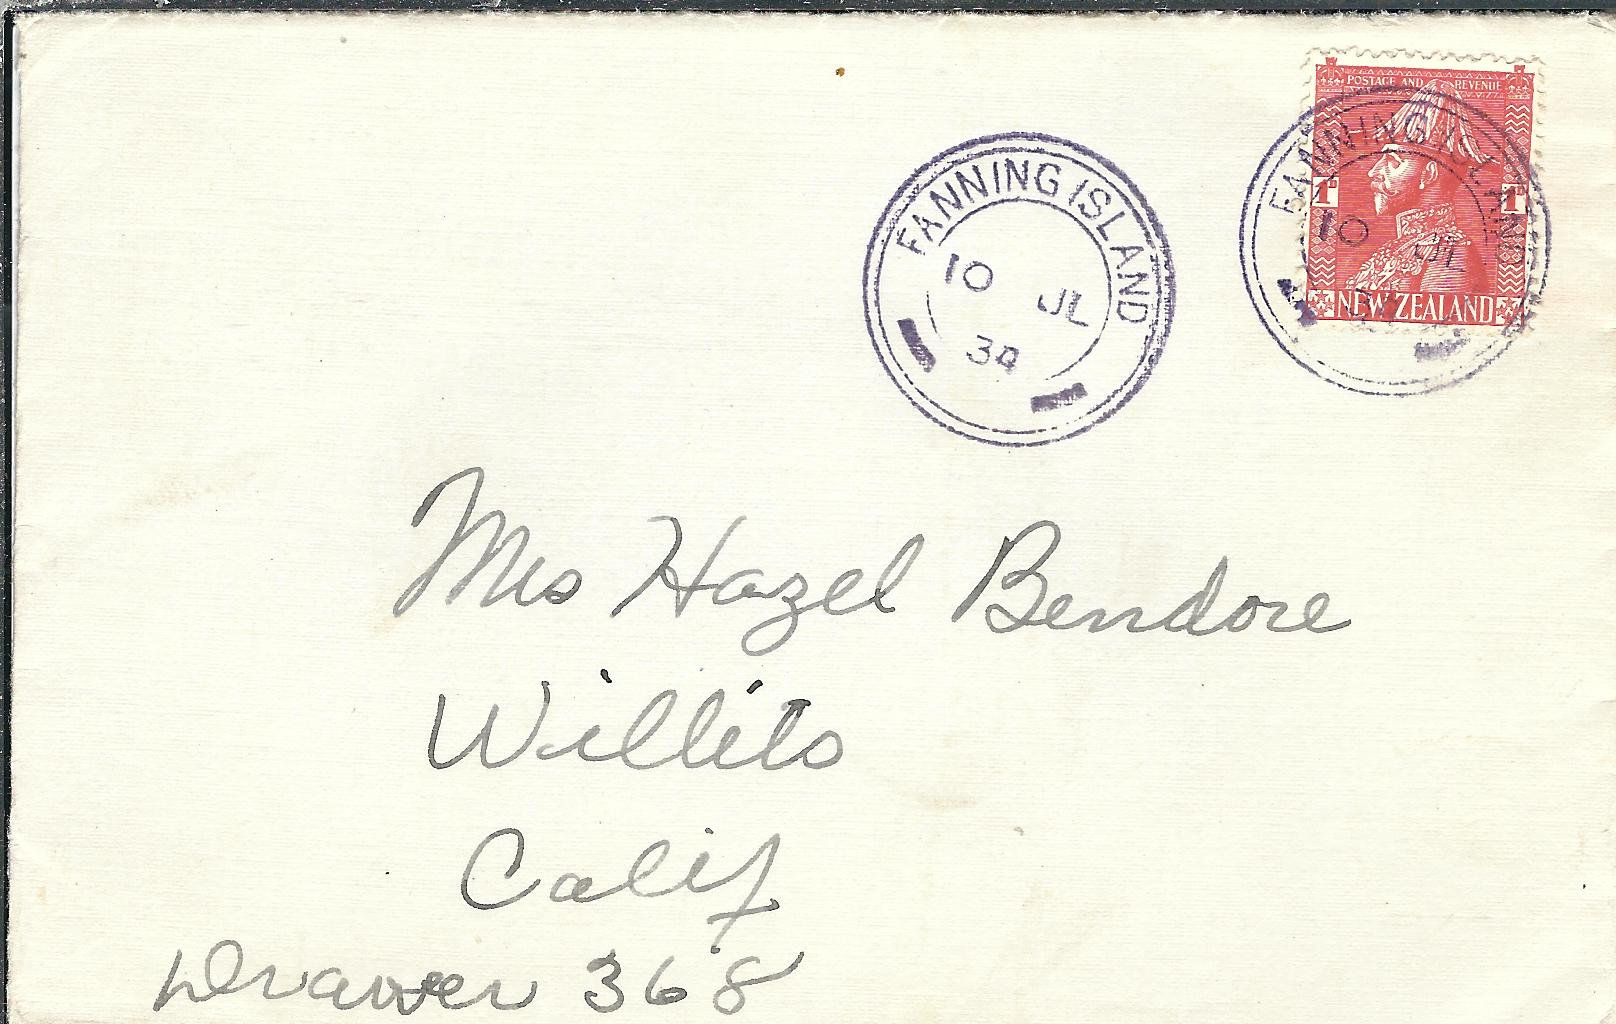 FANNING ISLAND
10 JL
34
POSTAGE AND REVENUE
FANNING ISLAND
1D 1D
10 JL
NEW ZEALAND
Mrs Hazel Bendore
Willits
Calif
Drawer 368